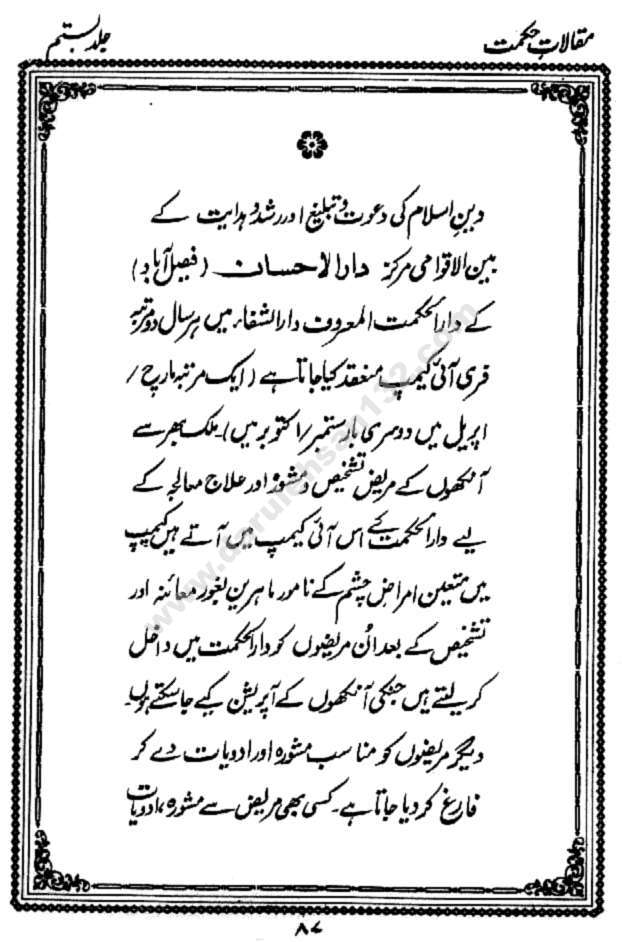 مقالاتِ حکمت
جلد بستم
دینِ اسلام کی دعوت و تبلیغ اور رشد و ہدایت کے
بین الاقوامی مرکز دارالاحسان (فیصل آباد)
کے دارالحکمت المعروف دارالشفاء میں ہر سال دو مرتبہ
فری آئی کیمپ منعقد کیا جاتا ہے (ایک مرتبہ مارچ /
اپریل میں دوسری بار ستمبر/اکتوبر میں)۔ ملک بھر سے
آنکھوں کے مریض تشخیص و مشورہ اور علاج معالجہ کے
لیے دارالحکمت کے اس آئی کیمپ میں آتے ہیں کیمپ
میں متعین امراضِ چشم کے نامور ماہرین بغور معائنہ اور
تشخیص کے بعد اُن مریضوں کو دارالحکمت میں داخل
کر لیتے ہیں جنکی آنکھوں کے آپریشن کیے جا سکتے ہوں۔
دیگر مریضوں کو مناسب مشورہ اور ادویات دے کر
فارغ کر دیا جاتا ہے۔ کسی بھی مریض سے مشورہ، ادویات
۸۷
www.darulehsan132.com